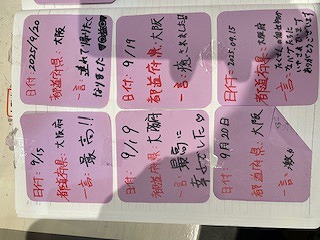 日付: 9/15
都道府県: 大阪府
一言: 最高!!
日付: 2025/9/20
都道府県: 大阪
一言: 連れて帰りたく
なりました
日付: 9/19
都道府県: 大阪府
一言: 最高に
幸せでした♡
日付: 9/19
都道府県: 大阪
一言: 癒されました!!
日付: 9月20日
都道府県: 大阪
一言:
日付: 2025.09.15
都道府県: 大阪府
一言:
ありがとうございます!